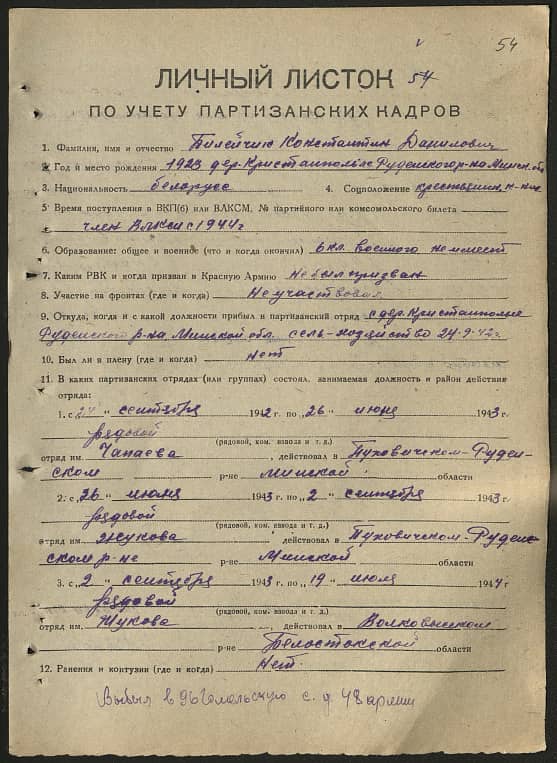 54
ЛИЧНЫЙ ЛИСТОК 54
ПО УЧЕТУ ПАРТИЗАНСКИХ КАДРОВ
1. Фамилия, имя и отчество Пилейчик Константин Данилович
2. Год и место рождения 1923 дер. Кристамполье Руденского р-на Минск. об.
3. Национальность белорусс 4. Соцположение крестьянин,
5. Время поступления в ВКП(б) или ВЛКСМ, № партийного или комсомольского билета
член ВЛКСМ с 1944 г
6. Образование: общее и военное (что и когда окончил) 6 кл. военного не имеет
7. Каким РВК и когда призван в Красную Армию Не был призван
8. Участие на фронтах (где и когда) Не участвовал
9. Откуда, когда и с какой должности прибыл в партизанский отряд с дер. Кристамполье
Руденского р-на Минской обл. сель-хозяйство 24-9-42 г
10. Был ли в плену (где и когда) Нет
11. В каких партизанских отрядах (или группах) состоял, занимаемая должность и район действия
отряда:
1. с „24" сентября 1942 г. по „26" июня 1943 г.
рядовой
(рядовой, ком. взвода и т. д.)
отряд им. Чапаева, действовал в Пуховичском-Руден-
ском р-не Минской области
2. с „26" июня 1943 г. по „2" сентября 1943 г.
рядовой
(рядовой, ком. взвода и т. д.)
отряд им. Жукова, действовал в Пуховичском-Руден-
ском р-не р-не Минской области
3. с „2" сентября 1943 г. по „19" июля 1944 г
рядовой
(рядовой, ком. взвода и т. д.)
отряд им. Жукова, действовал в Волковыском
р-не Белостокской области
12. Ранения и контузии (где и когда) Нет.
Выбыл в 96 Гомельскую с. д. 48 армии